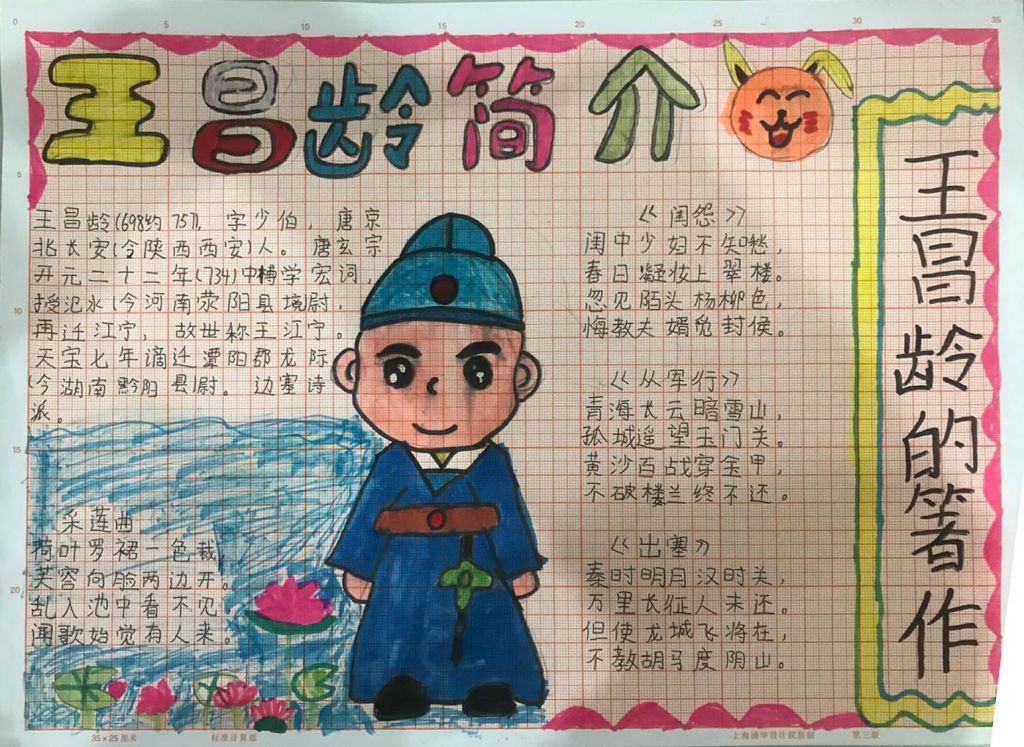 王昌龄简介
王昌龄(698约757),字少伯,唐京
北长安(今陕西西安)人。唐玄宗
开元二十二年(734)中博学宏词,
授汜水(今河南荥阳县境尉,
再迁江宁,故世称王江宁。
天宝七年谪迁潭阳郡龙际
(今湖南黔阳县尉。边塞诗
派。
采莲曲
荷叶罗裙一色裁
芙容向脸两边开。
乱入池中看不见
闻歌始觉有人来。
《闺怨》
闺中少妇不知愁,
春日凝妆上翠楼。
忽见陌头杨柳色,
悔教夫婿觅封侯。
《从军行》
青海长云暗雪山,
孤城遥望玉门关。
黄沙百战穿金甲,
不破楼兰终不还。
《出塞》
秦时明月汉时关,
万里长征人未还。
但使龙城飞将在,
不教胡马度阴山。
王昌龄的箸作
0 5 10 15 20 25 30 35
5
10
15
20
35×25厘米
标准计算纸
上海浦华设计院监制
第三版